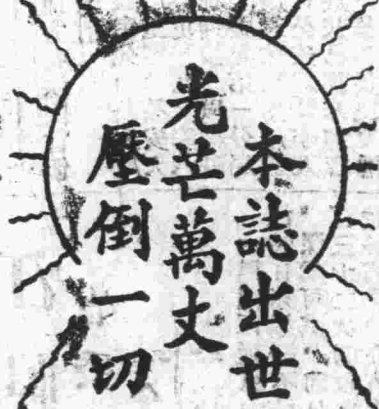 本誌出世
光芒萬丈
壓倒一切